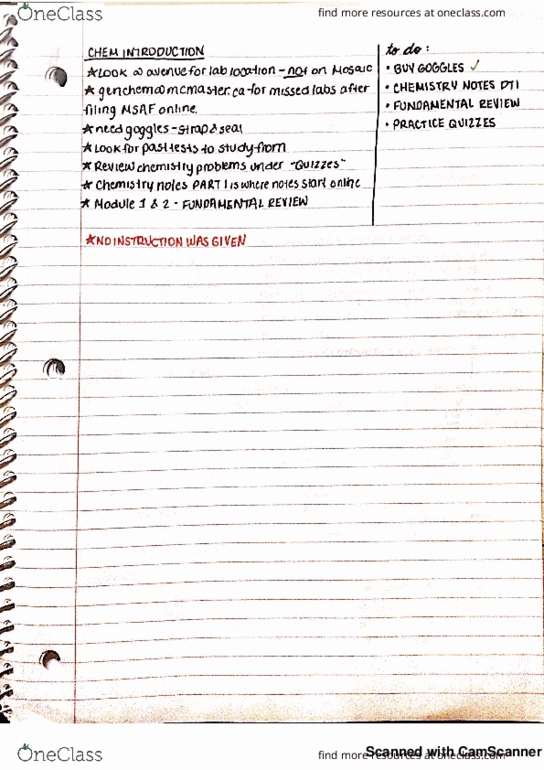 OneClass
find more resources at oneclass.com
CHEM INTRODUCTION
★ LOOK @ avenue for lab location - not on Mosaic
★ genchem@mcmaster.ca - for missed labs after
filing MSAF online.
★ need goggles - strap & seal
★ LOOK for past tests to study from
★ Review chemistry problems under "QUIZZES"
★ Chemistry notes PART 1 is where notes start online
★ Module 1 & 2 - FUNDAMENTAL REVIEW
★ NO INSTRUCTION WAS GIVEN
to do:
• BUY GOGGLES ✓
• CHEMISTRY NOTES PT1
• FUNDAMENTAL REVIEW
• PRACTICE QUIZZES
OneClass
find more resources at oneclass.com
Scanned with CamScanner